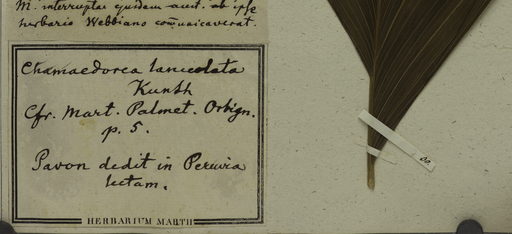 M. interruptae quidam accit. ab ipse
herbario Webbiano communicaverat.
Chamaedorea lanceolata
Kunth
Cfr. Mart. Palmet. Orbign.
p. 5.
Pavon dedit in Peruvia
lectam.
HERBARIUM MARTII